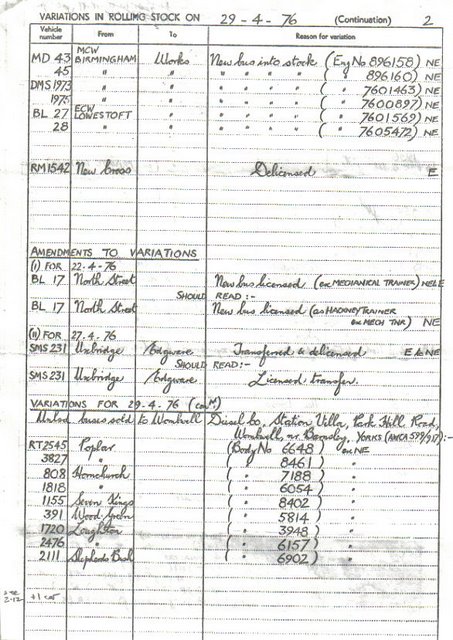 VARIATIONS IN ROLLING STOCK ON 29-4-76 (Continuation) 2
Vehicle number From To Reason for variation
MD 43 MCW BIRMINGHAM Works New bus into stock (Eng No 896158) NE
45 " " " " " " ( " 896160) NE
DMS 1973 " " " " " " ( " 7601463) NE
1975 " " " " " " ( " 7600897) NE
BL 27 ECW LOWESTOFT " " " " " ( " 7601569) NE
28 " " " " " " ( " 7605472) NE
RM1542 New Cross Delicensed E
AMENDMENTS TO VARIATIONS
(i) FOR 22-4-76
BL 17 North Street New bus licensed (ex MECHANICAL TRAINER) NELE
SHOULD READ:-
BL 17 North Street New bus licensed (as HACKNEY TRAINER
ex MECH TNR) NE
(ii) FOR 27-4-76
SMS 231 Uxbridge Edgware Transferred & delicensed E to NE
SHOULD READ:-
SMS 231 Uxbridge Edgware Licensed transfer.
VARIATIONS FOR 29.4.76 (conM)
buses sold to Wombwell Diesel Co. Station Villa, Park Hill Road,
Wombwell, nr. Barnsley, YORKS (AMCA 599/917):-
RT2545 Poplar (Body No 6648) ex NE
3827 " ( " 8461) "
808 Hornchurch ( " 7188) "
1818 " ( " 6054) "
1155 Seven Kings ( " 8402) "
391 Wood Green ( " 5814) "
1720 Loughton ( " 3948) "
2476 " ( " 6157) "
2111 Shepherds Bush ( " 6902) "
2-12 +1 car